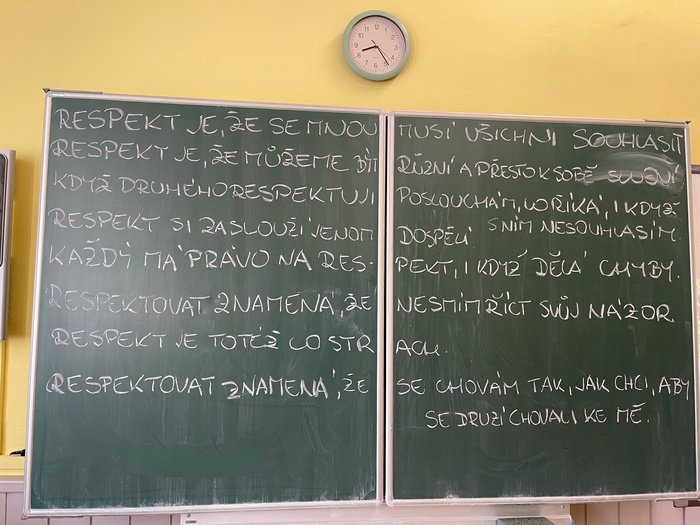 RESPEKT JE, ŽE SE MNOU MUSÍ VŠICHNI SOUHLASIT
RESPEKT JE, ŽE MŮŽEME BÝT RŮZNÍ A PŘESTO K SOBĚ SLUŠNÍ
KDYŽ DRUHÉHO RESPEKTUJI POSLOUCHÁM, CO ŘÍKÁ, I KDYŽ
S NÍM NESOUHLASÍM.
RESPEKT SI ZASLOUŽÍ JENOM DOSPĚLÍ
KAŽDÝ MÁ PRÁVO NA RES- PEKT, I KDYŽ DĚLÁ CHYBY.
RESPEKTOVAT ZNAMENÁ, ŽE NESMÍM ŘÍCT SVŮJ NÁZOR
RESPEKT JE TOTÉŽ CO STR ACH.
RESPEKTOVAT ZNAMENÁ, ŽE SE CHOVÁM TAK, JAK CHCI, ABY
SE DRUZÍ CHOVALI KE MĚ.